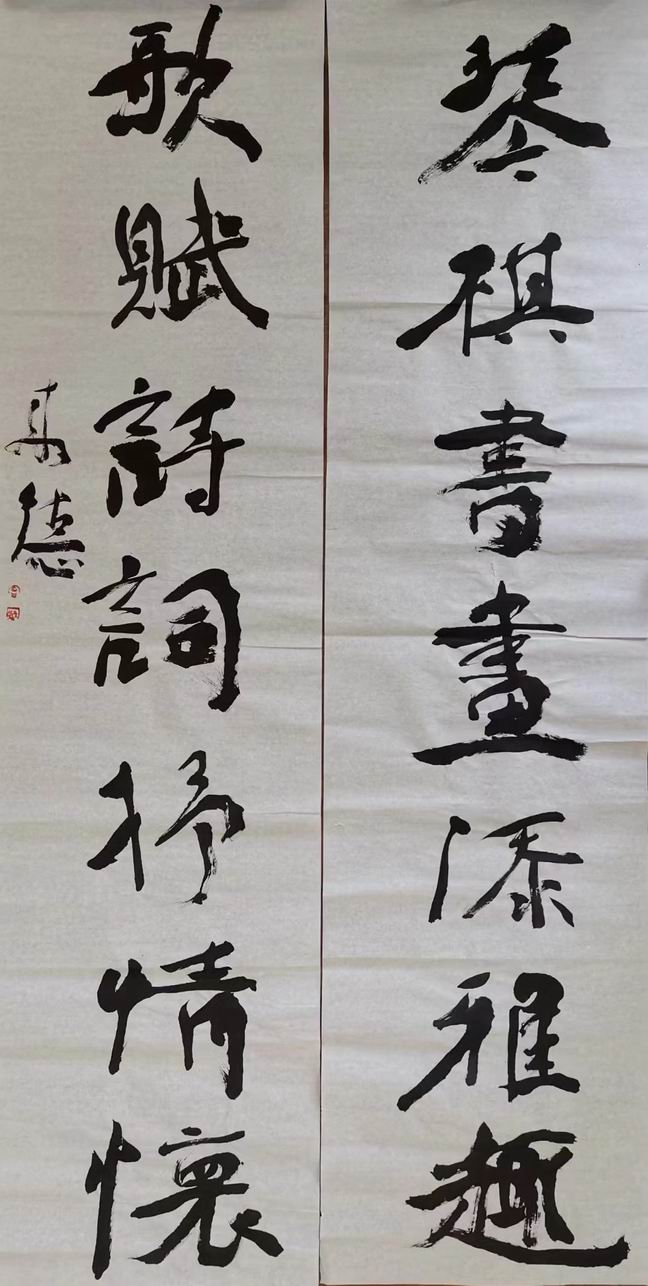 琴棋書畫添雅趣
歌賦詩詞抒情懷